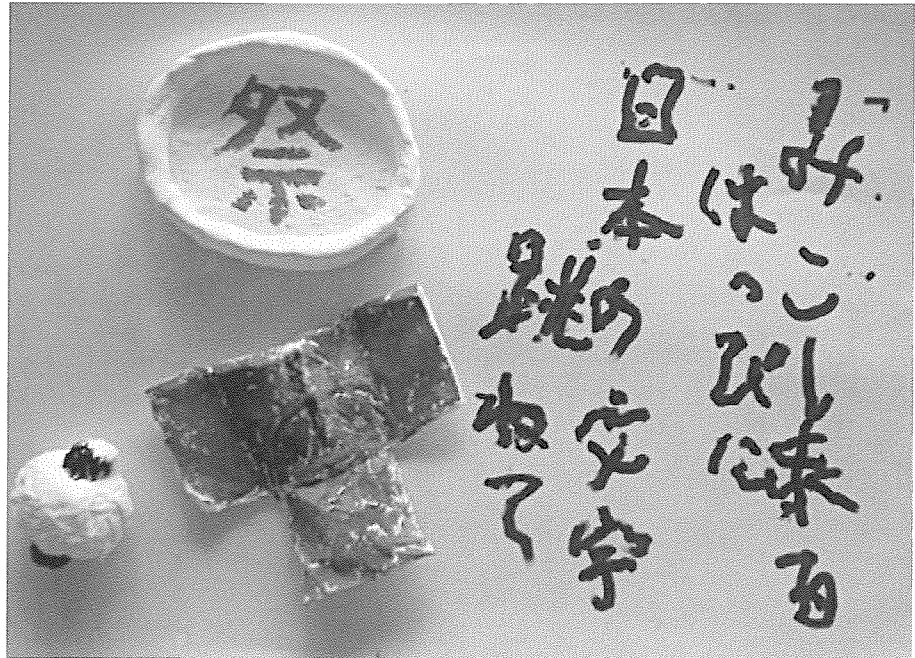 みこし来る
はっぴに
日本の文字
跳ねて
祭